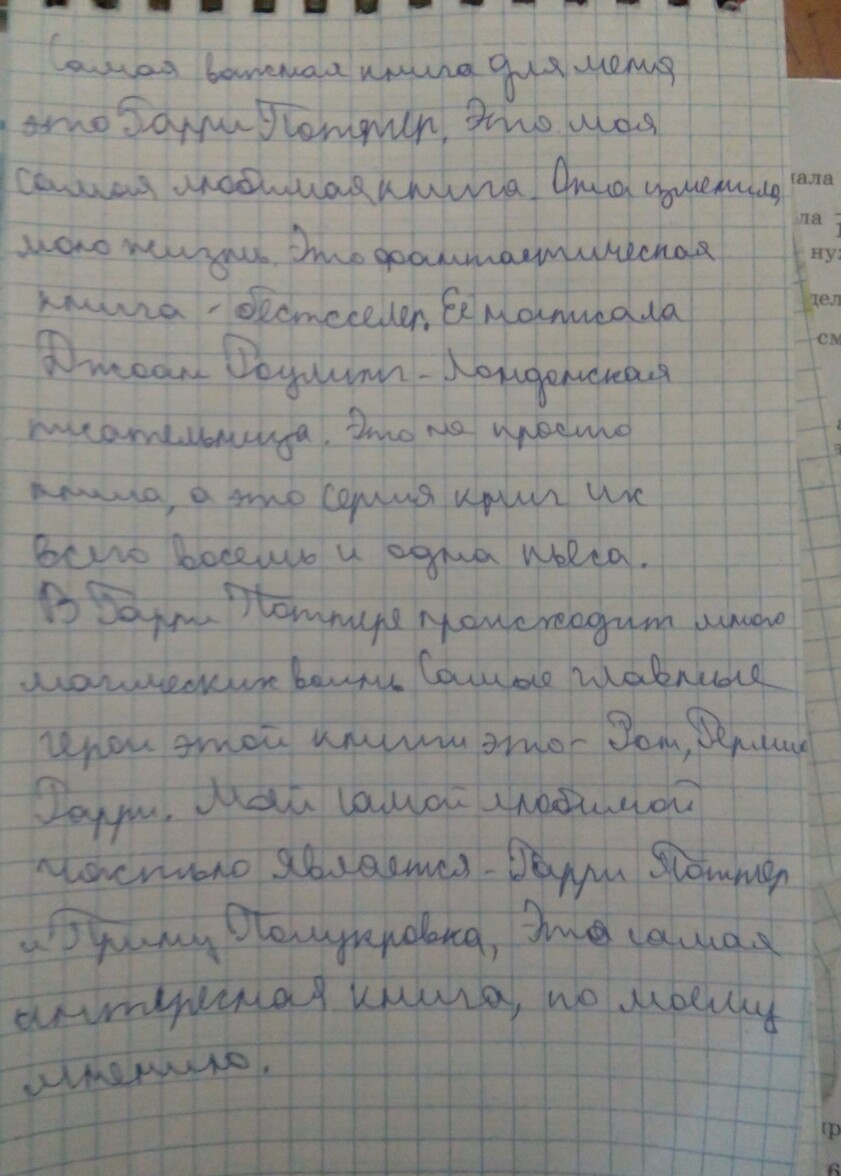 Самая важная книга для меня
это Гарри Поттер. Это моя
самая любимая книга. Она изменила
мою жизнь. Это фантастическая
книга - бестселлер. Её написала
Джоан Роулинг - Лондонская
писательница. Это не просто
книга, а это серия книг их
всего восемь и одна пьеса.
В Гарри Поттере происходит много
магических воинь Самые главные
герои этой книги это - Рон, Герми
Гарри. Мой самой любимой
частью является - Гарри Поттер
и Принц Полукровка, Эта самая
интересная книга, по моему
мнению.
ала
ла
ну
дел
см
6